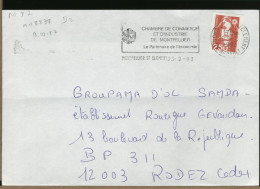 CHAMBRE DE COMMERCE
ET D'INDUSTRIE
DE MONTPELLIER
Le Partenaire de l'économie
GROUPAMA D'OC SAMDA
établissement Rouergue Gévaudan
13 boulevard de la République
BP 311
12003 RODEZ Cedex